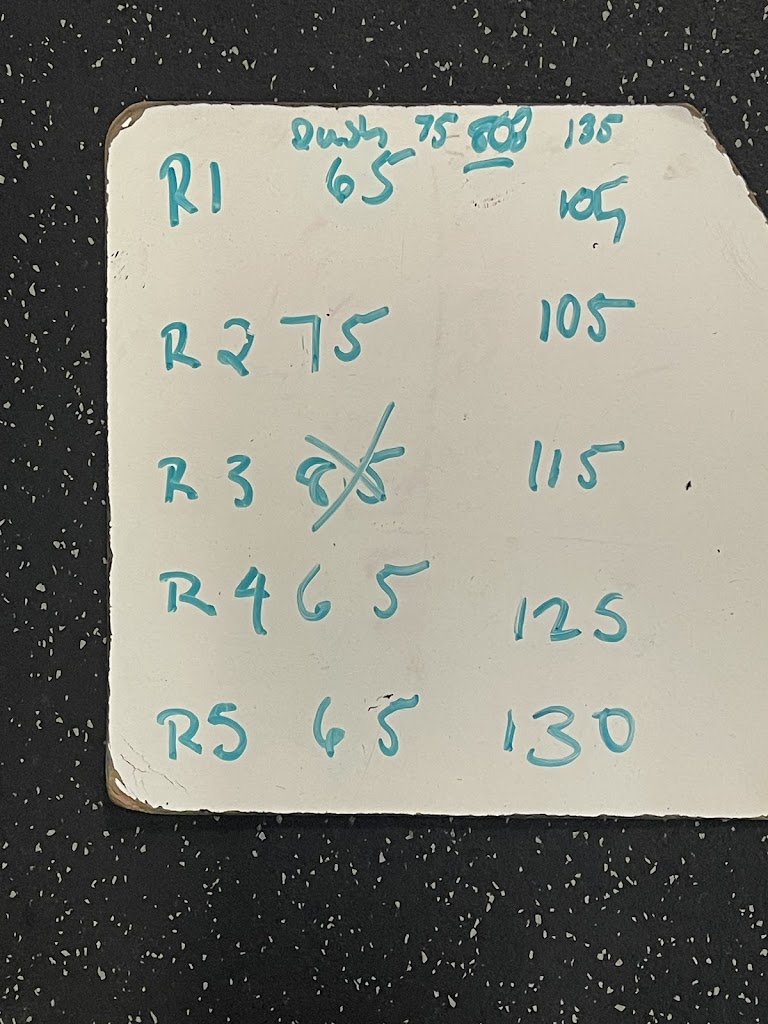 75 135
R1 65 105
R2 75 105
R3 85 115
R4 65 125
R5 65 130